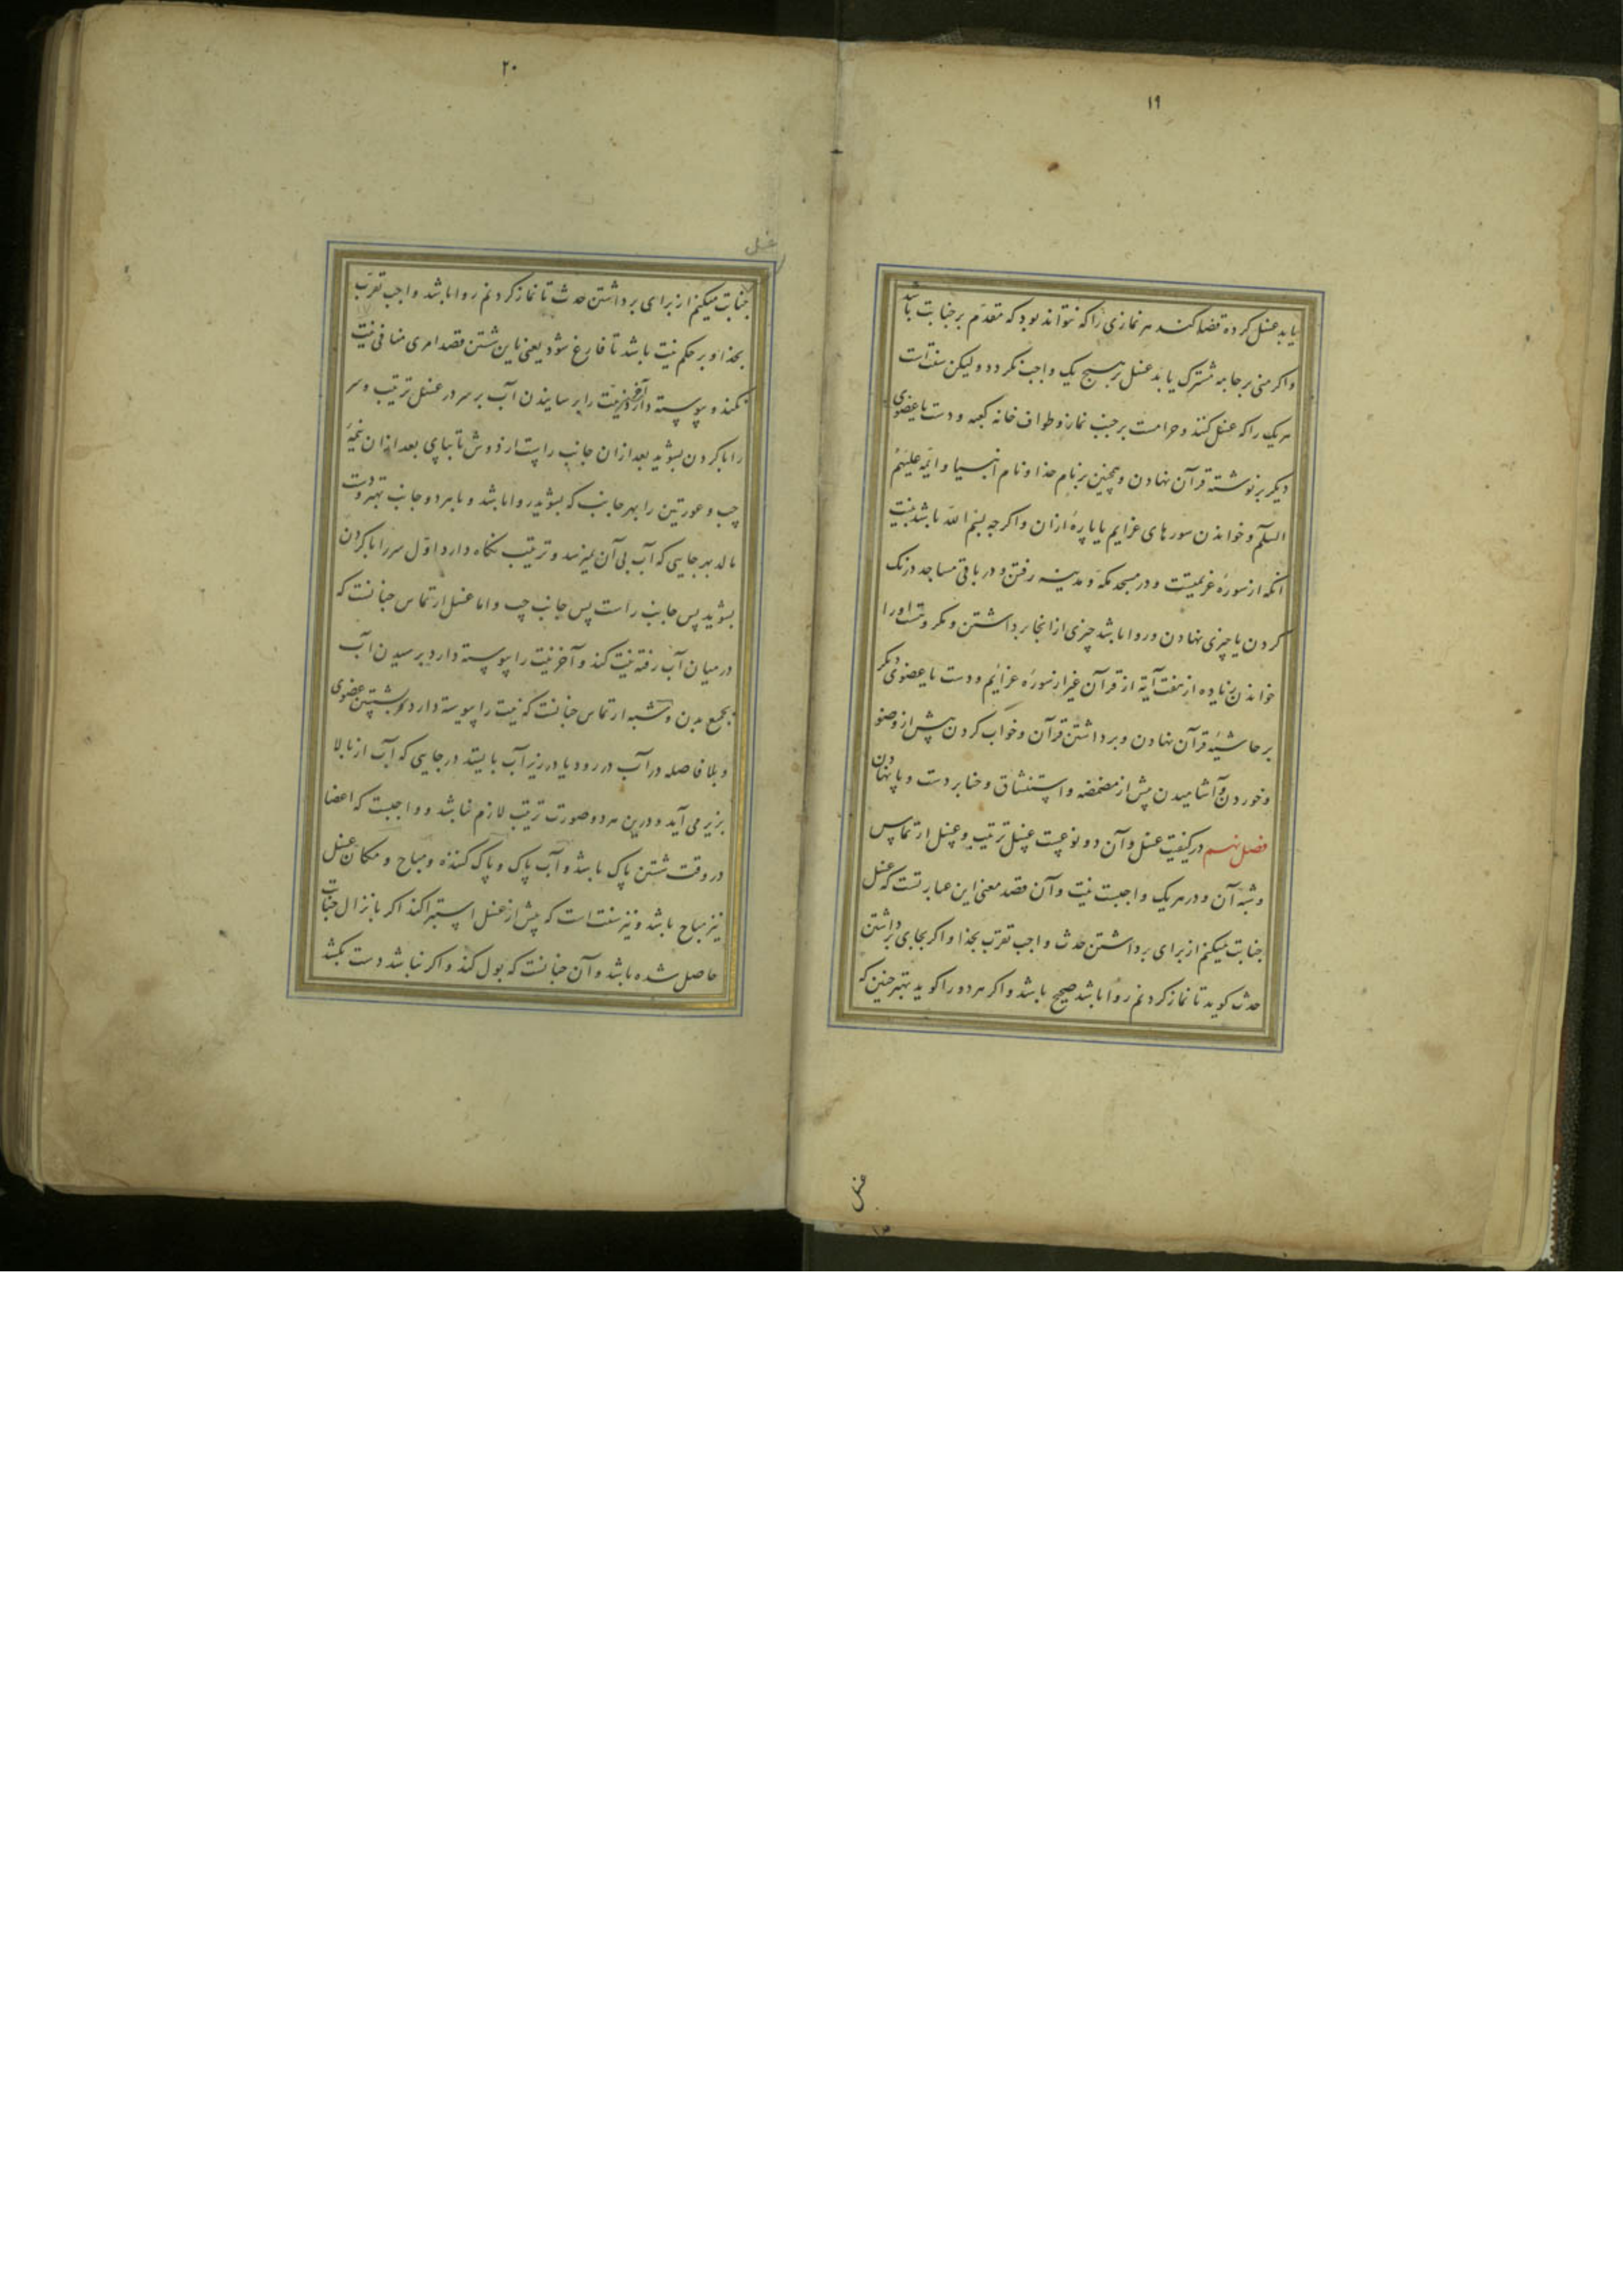 ١٩
یابد غسل کرده قضا کند هر نمازی را که نتواند بود که مقدّم بر جنابت باشد
و اکر منی بر جامه مشترک یابد غسل بر هیچ یک واجب نکردد و لیکن سنّت است
هر یک را که غسل کنند و حرامست بر جنب نماز و طواف خانه کعبه و دست یا عضوی
دیکر بر نوشته قرآن نهادن و همچنین بر نام خدا و نام انبیا و ایمّه علیهم
السلّم و خواندن سورهای عزایم یا پاره ازان و اکر چه بسم اللّه باشد بنیت
انکه از سوره عزیمتست و در مسجد مکه و مدینه رفتن و در باقی مساجد درنک
کردن یا چیزی نهادن و روا باشد چیزی از انجا برداشتن و مکروهست او را
خواندن زیاده از هفت آیه از قرآن غیر از سوره عزائم و دست یا عضوی دیکر
بر حاشیه قرآن نهادن و برداشتن قرآن و خواب کردن پیش از وضو
و خوردن و آشامیدن پیش از مضمضه و استنشاق و حنا بر دست و پا نهادن
فصل نهم در کیفیت غسل و آن دو نوعست غسل ترتیب و غسل ارتماس
و شبه آن و در هر یک واجبست نیت و آن قصد معنی این عبارتست که غسل
جنابت میکنم از برای برداشتن حدث واجب تقرّب بخدا و اکر بجای برداشتن
حدث کوید تا نماز کردنم روا باشد صحیح باشد و اکر هر دو را کوید بهتر چنین که
غسل
٢٠
غسل
جنابت میکنم از برای برداشتن حدث تا نماز کردنم روا باشد واجب تقرّب
بخدا و بر حکم نیت باشد تا فارغ شود یعنی باین شستن قصد امری منافی نیت
نکند و پیوسته دارد آخر نیت را برسانیدن آب بر سر در غسل ترتیب و سر
را با کردن بشوید بعد ازان جانب راست از دوش تا بپای بعد ازان نیمه
چپ و عورتین را بهر جانب که بشوید روا باشد و با هر دو جانب بهتر و دست
مالد بهر جایی که آب بی آن نمیرسد و ترتیب نکاه دارد اوّل سر را با کردن
بشوید پس جانب راست پس جانب چپ و اما غسل ارتماس چنانست که
در میان آب رفته نیت کند و آخر نیت را پیوسته دارد برسیدن آب
بجمیع بدن و شبه ارتماس چنانست که نیت را پیوسته دارد بشستن عضوی
و بلا فاصله در آب در رود یا در زیر آب بایستد در جایی که آب از بالا
بزیر می آید و درین هر دو صورت ترتیب لازم نباشد و واجبست که اعضا
در وقت شستن پاک باشد و آب پاک و پاک کننده و مباح و مکان غسل
نیز مباح باشد و نیز سنت است که پیش از غسل استبرا کند اکر بانزال جنابت
حاصل شده باشد و آن چنانست که بول کند و اکر نباشد دست بکشد